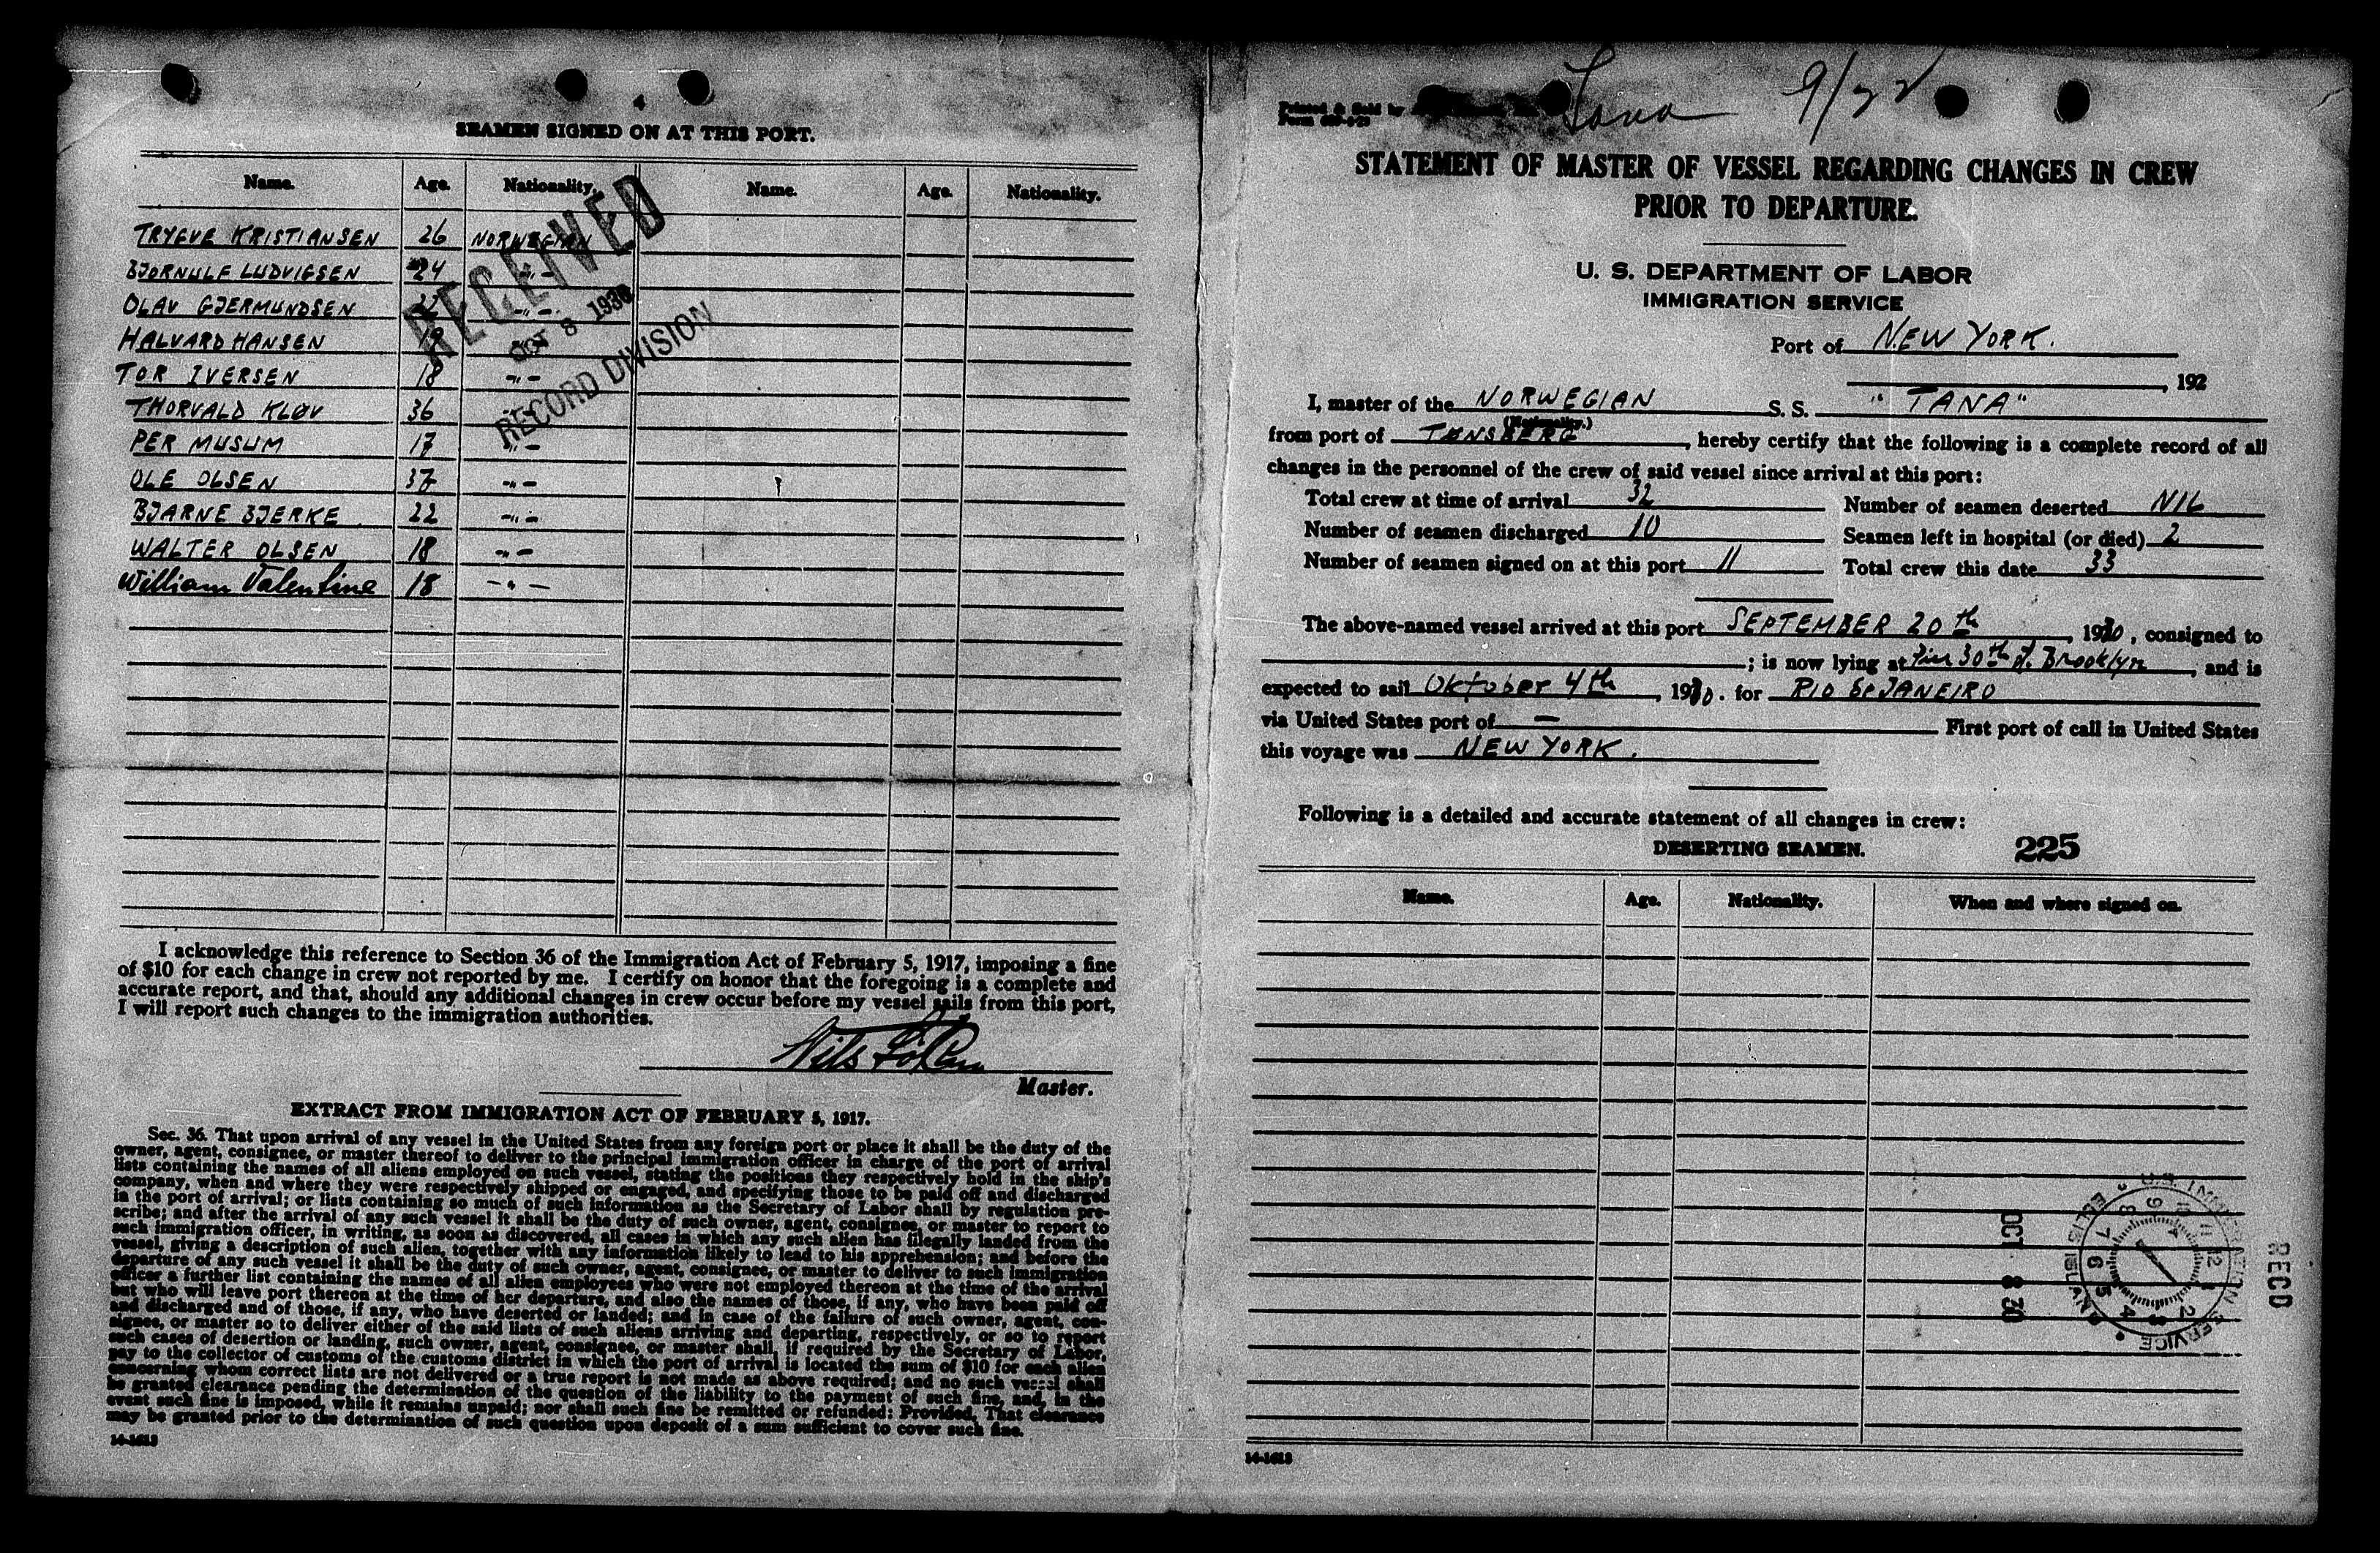 4
SEAMEN SIGNED ON AT THIS PORT.
Name. Age. Nationality. Name. Age. Nationality.
TRYGVE KRISTIANSEN 26 NORWEGIAN
BJORNULF LUDVIGSEN 24 -"-
OLAV GJERMUNDSEN -"-
HALVARD HANSEN
TOR IVERSEN 18 -"-
THORVALD KLØV 36 -"-
PER MUSUM 17 -"-
OLE OLSEN 37 -"-
BJARNE BJERKE 22 -"-
WALTER OLSEN 18 -"-
William Valentine 18 -"-
RECEIVED
OCT 8 1930
RECORD DIVISION
I acknowledge this reference to Section 36 of the Immigration Act of February 5, 1917, imposing a fine
of $10 for each change in crew not reported by me. I certify on honor that the foregoing is a complete and
accurate report, and that, should any additional changes in crew occur before my vessel sails from this port,
I will report such changes to the immigration authorities.
Nils
Master.
EXTRACT FROM IMMIGRATION ACT OF FEBRUARY 5, 1917.
Sec. 36. That upon arrival of any vessel in the United States from any foreign port or place it shall be the duty of the
owner, agent, consignee, or master thereof to deliver to the principal immigration officer in charge of the port of arrival
lists containing the names of all aliens employed on such vessel, stating the positions they respectively hold in the ship's
company, when and where they were respectively shipped or engaged, and specifying those to be paid off and discharged
in the port of arrival; or lists containing so much of such information as the Secretary of Labor shall by regulation pre-
scribe; and after the arrival of any such vessel it shall be the duty of such owner, agent, consignee, or master to report to
such immigration officer, in writing, as soon as discovered, all cases in which any such alien has illegally landed from the
vessel, giving a description of such alien, together with any information likely to lead to his apprehension; and before the
departure of any such vessel it shall be the duty of such owner, agent, consignee, or master to deliver to such immigration
officer a further list containing the names of all alien employees who were not employed thereon at the time of the arrival
but who will leave port thereon at the time of her departure, and also the names of those, if any, who have been paid off
and discharged and of those, if any, who have deserted or landed; and in case of the failure of such owner, agent, con-
signee, or master so to deliver either of the said lists of such aliens arriving and departing, respectively, or so to report
such cases of desertion or landing, such owner, agent, consignee, or master shall, if required by the Secretary of Labor,
pay to the collector of customs of the customs district in which the port of arrival is located the sum of $10 for each alien
concerning whom correct lists are not delivered or a true report is not made as above required; and no such vessel shall
be granted clearance pending the determination of the question of the liability to the payment of such fine, and, in the
event such fine is imposed, while it remains unpaid; nor shall such fine be remitted or refunded: Provided, That clearance
may be granted prior to the determination of such question upon deposit of a sum sufficient to cover such fine.
14-1613
Printed & Sold by
Form
Tana 9/22
STATEMENT OF MASTER OF VESSEL REGARDING CHANGES IN CREW
PRIOR TO DEPARTURE.
U. S. DEPARTMENT OF LABOR
IMMIGRATION SERVICE
Port of NEW YORK.
, 192
I, master of the NORWEGIAN S. S. "TANA"
(Nationality.)
from port of TØNSBERG, hereby certify that the following is a complete record of all
changes in the personnel of the crew of said vessel since arrival at this port:
Total crew at time of arrival 32 Number of seamen deserted NIL
Number of seamen discharged 10 Seamen left in hospital (or died) 2
Number of seamen signed on at this port 11 Total crew this date 33
The above-named vessel arrived at this port SEPTEMBER 20th, 1930, consigned to
; is now lying at Pier 30th st. Brooklyn, and is
expected to sail Oktober 4th, 1930. for RIO de JANEIRO
via United States port of — First port of call in United States
this voyage was NEW YORK.
Following is a detailed and accurate statement of all changes in crew:
DESERTING SEAMEN. 225
Name. Age. Nationality. When and where signed on.
U.S. IMMIGRATION SERVICE
ELLIS ISLAND
OCT 8 30
RECD
14-1613